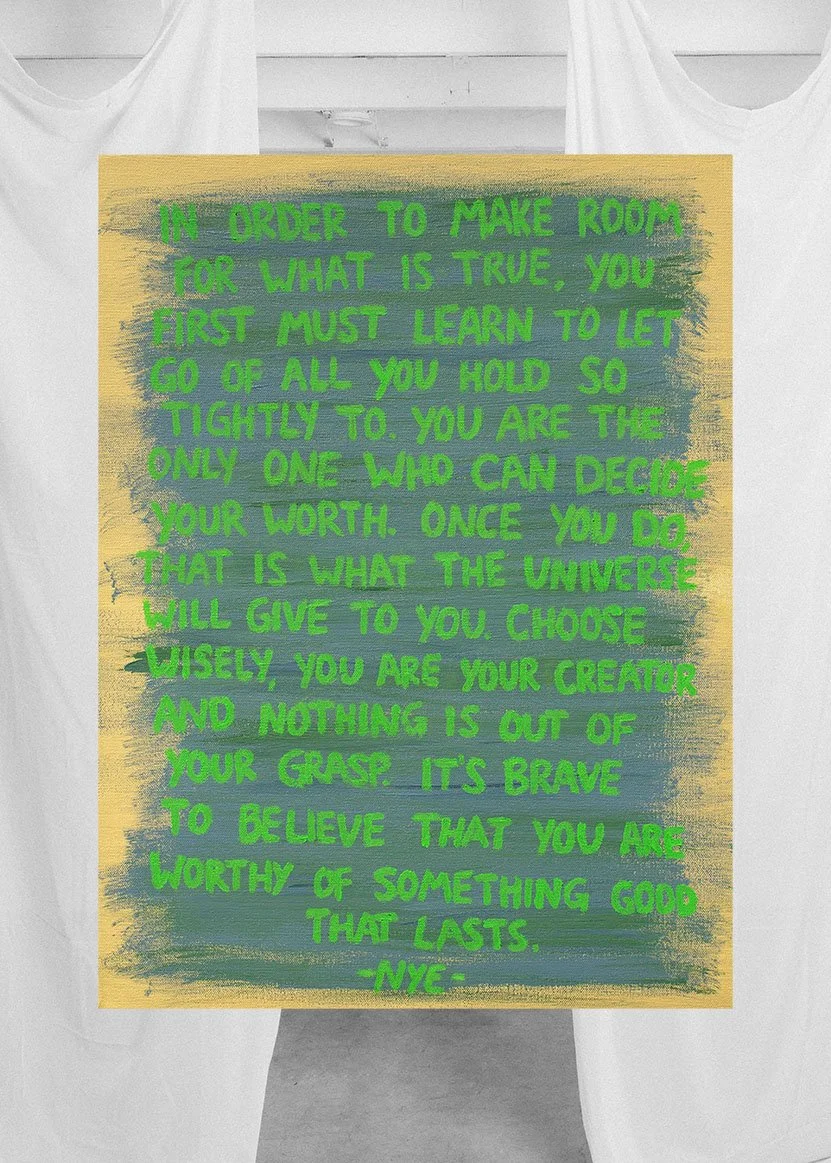 IN ORDER TO MAKE ROOM
FOR WHAT IS TRUE, YOU
FIRST MUST LEARN TO LET
GO OF ALL YOU HOLD SO
TIGHTLY TO. YOU ARE THE
ONLY ONE WHO CAN DECIDE
YOUR WORTH. ONCE YOU DO,
THAT IS WHAT THE UNIVERSE
WILL GIVE TO YOU. CHOOSE
WISELY, YOU ARE YOUR CREATOR
AND NOTHING IS OUT OF
YOUR GRASP. IT'S BRAVE
TO BELIEVE THAT YOU ARE
WORTHY OF SOMETHING GOOD
THAT LASTS.
-NYE-